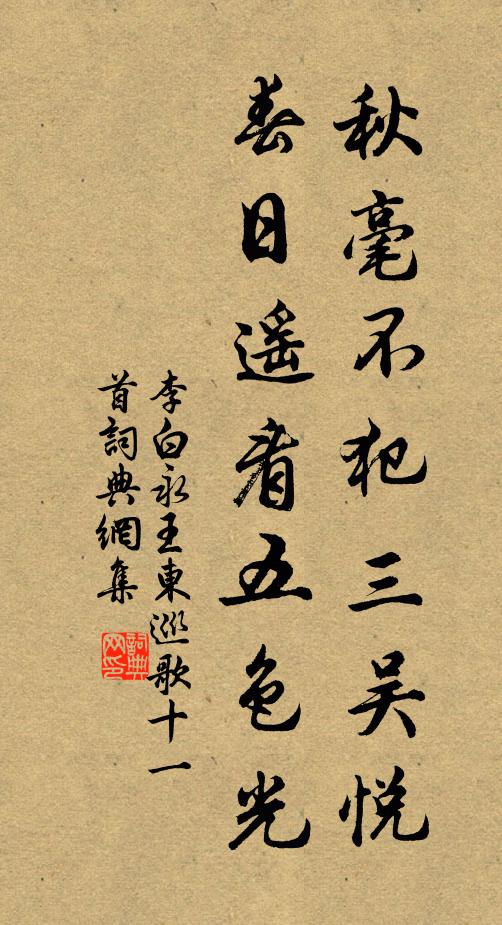 秋毫不犯三吴悦
春日遥看五色光
李白永王東巡歌十一
首詞典網集
詞典网印